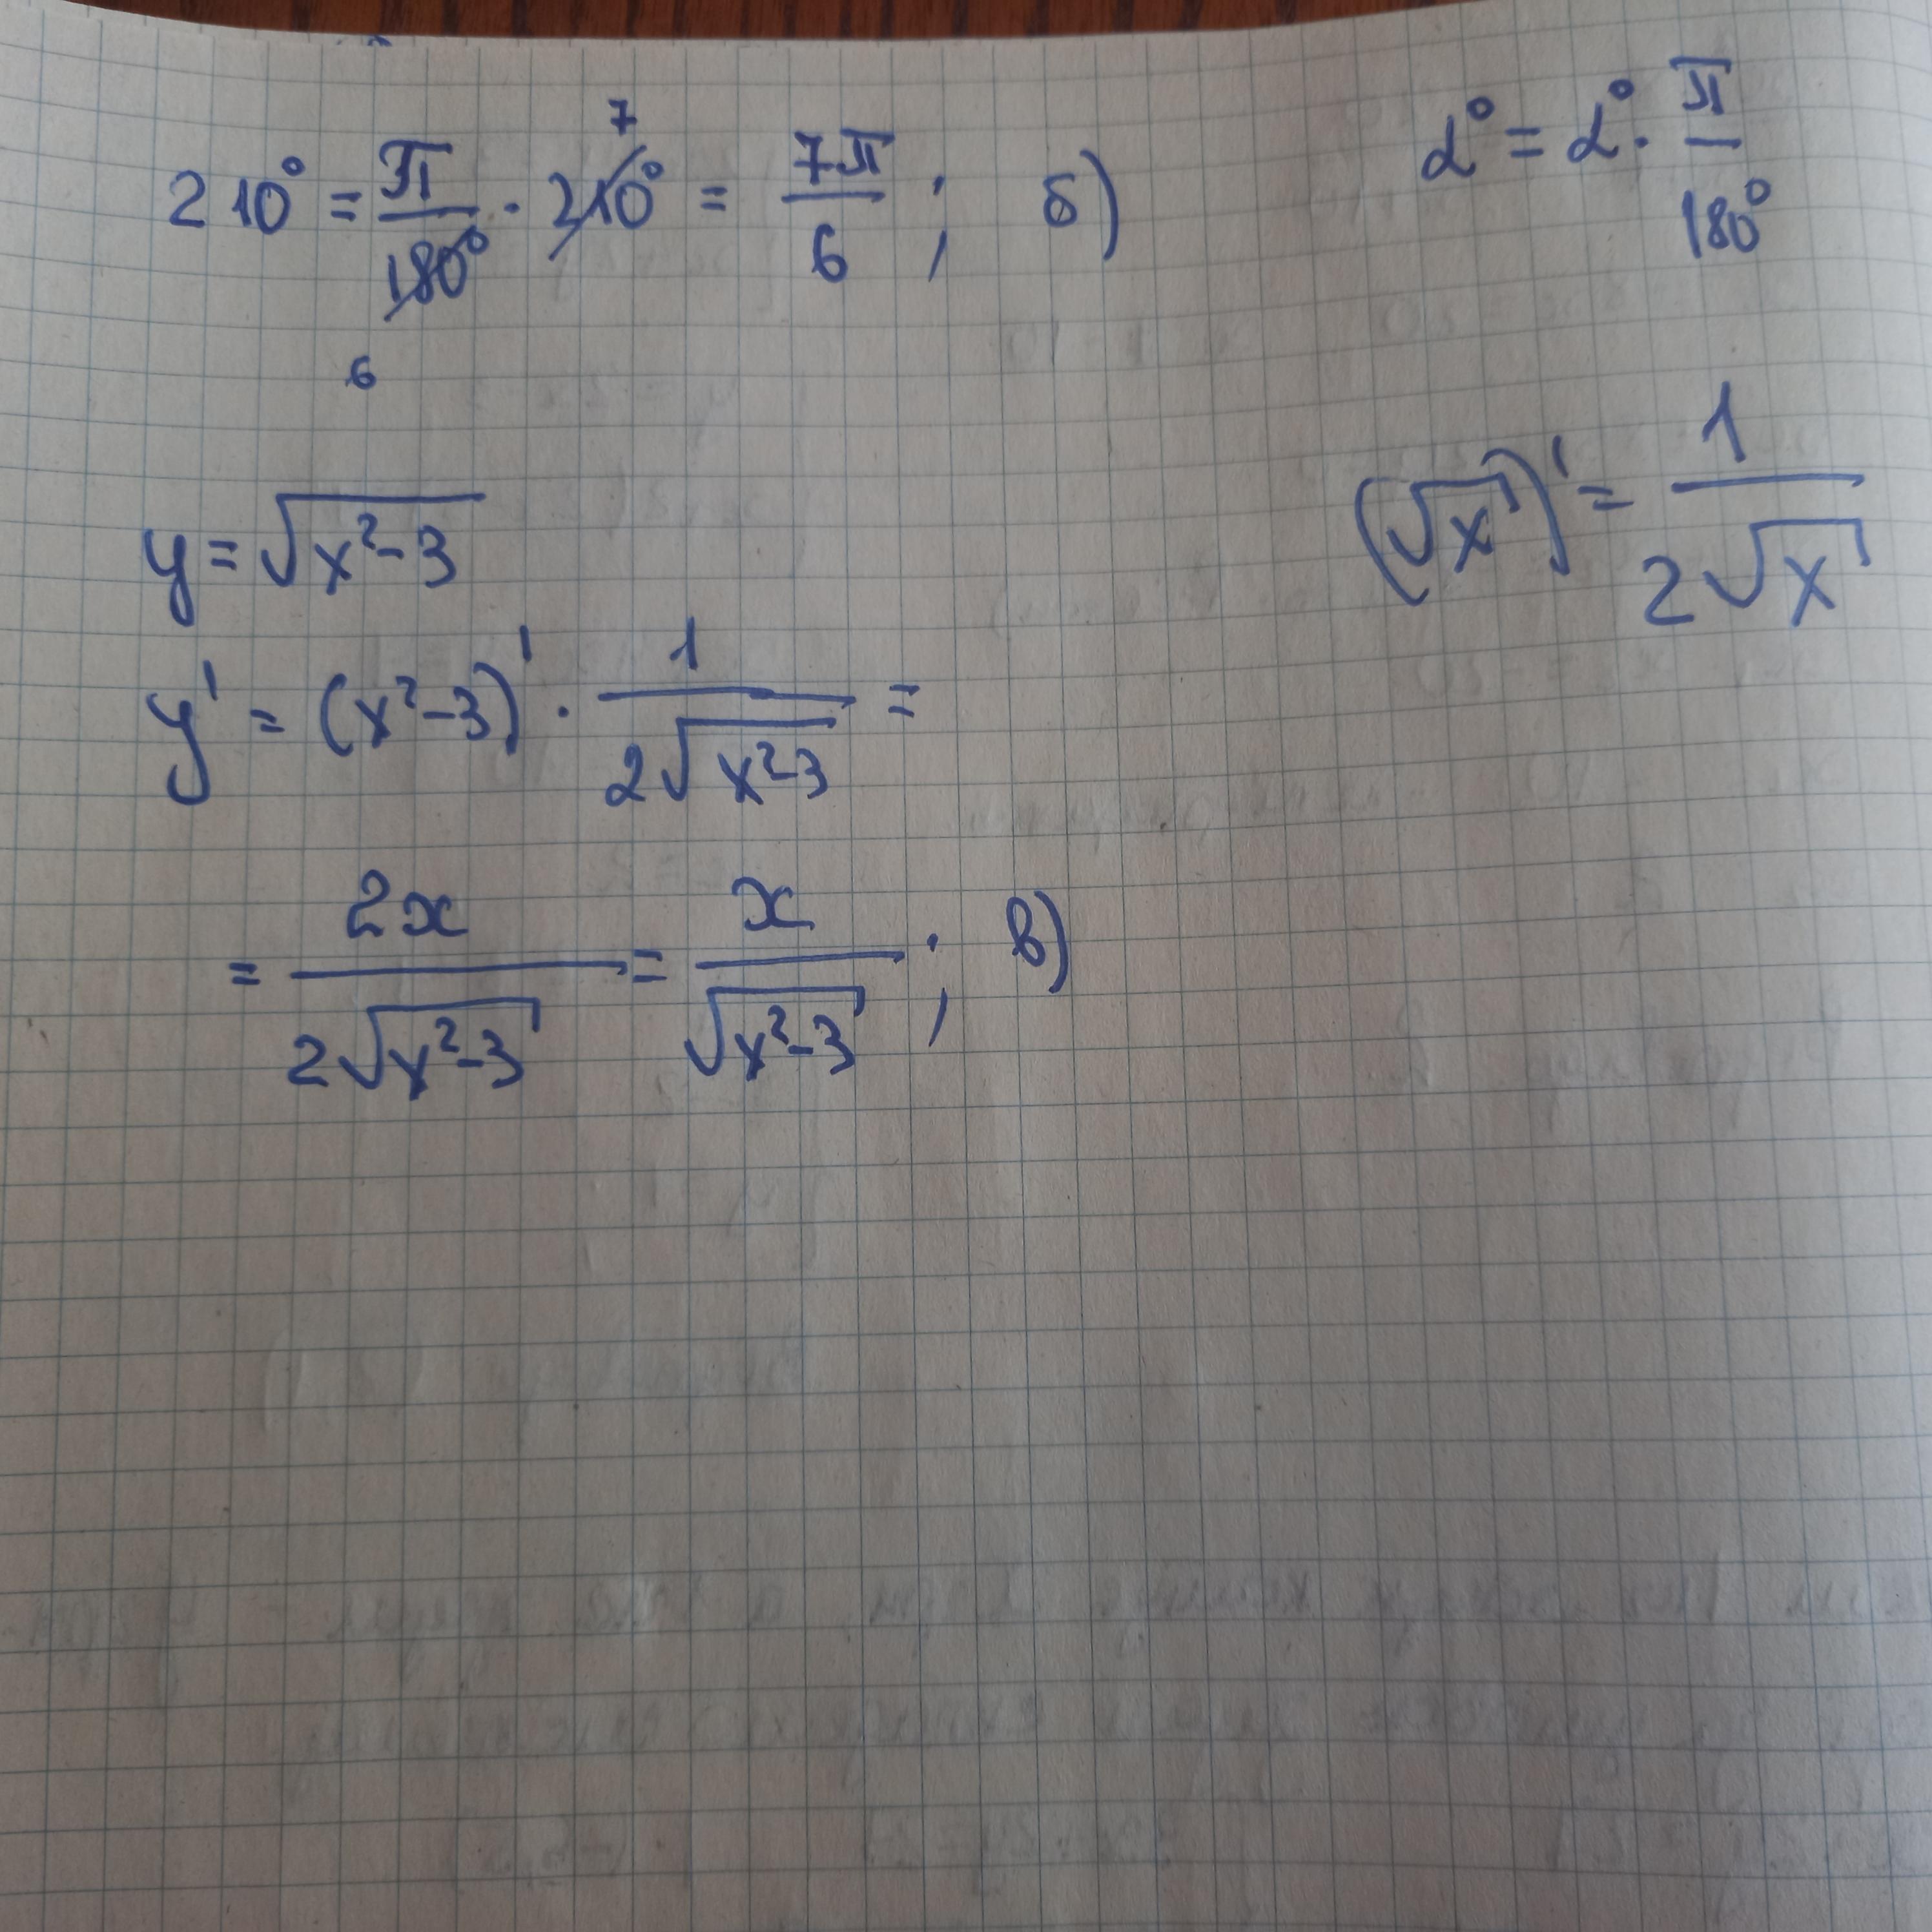 210° = π/180° · 210° = 7π/6 ; б)
7
6
α° = α° · π/180°
y = √(x²-3)
(√x)' = 1/(2√x)
y' = (x²-3)' · 1/(2√(x²-3)) =
= 2x/(2√(x²-3)) = x/√(x²-3) ; в)